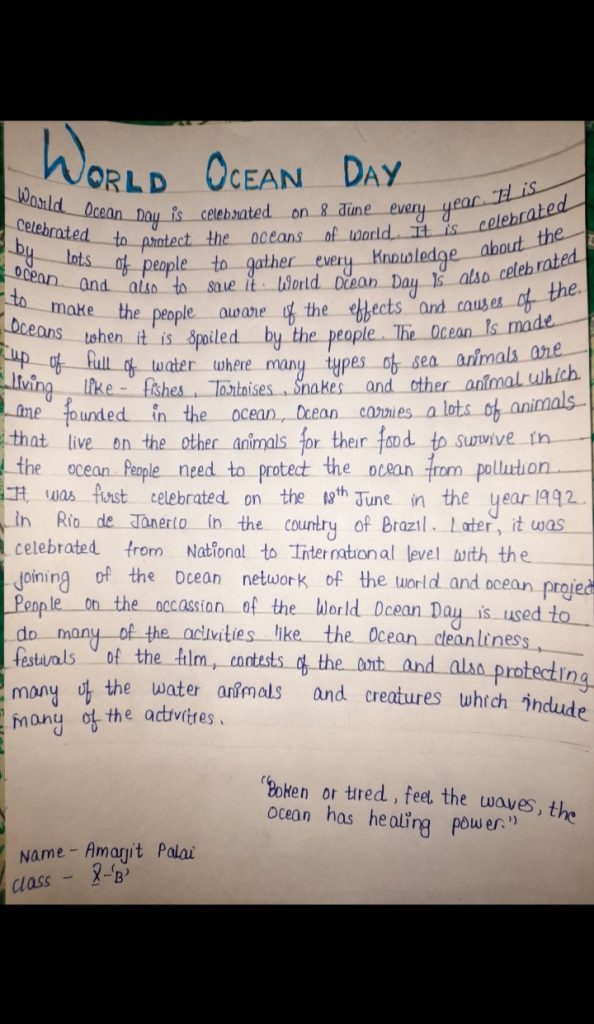 WORLD OCEAN DAY
World Ocean Day is celebrated on 8 June every year. It is
celebrated to protect the oceans of world. It is celebrated
by lots of people to gather every knowledge about the
ocean and also to save it. World Ocean Day is also celebrated
to make the people aware of the effects and causes of the
Oceans when it is spoiled by the people. The Ocean is made
up of full of water where many types of sea animals are
living like - fishes, Tortoises, Snakes and other animal which
are founded in the ocean, Ocean carries a lots of animals
that live on the other animals for their food to survive in
the ocean. People need to protect the ocean from pollution.
It, was first celebrated on the 8th June in the year 1992
in Rio de Janerio in the country of Brazil. Later, it was
celebrated from National to International level with the
joining of the Ocean network of the world and ocean project
People on the occassion of the World Ocean Day is used to
do many of the activities like the Ocean cleanliness,
festivals of the film, contests of the art and also protecting
many of the water animals and creatures which include
many of the activities.
"Boken or tired, feel the waves, the
Ocean has healing power."
Name - Amarjit Palai
Class - X-'B'